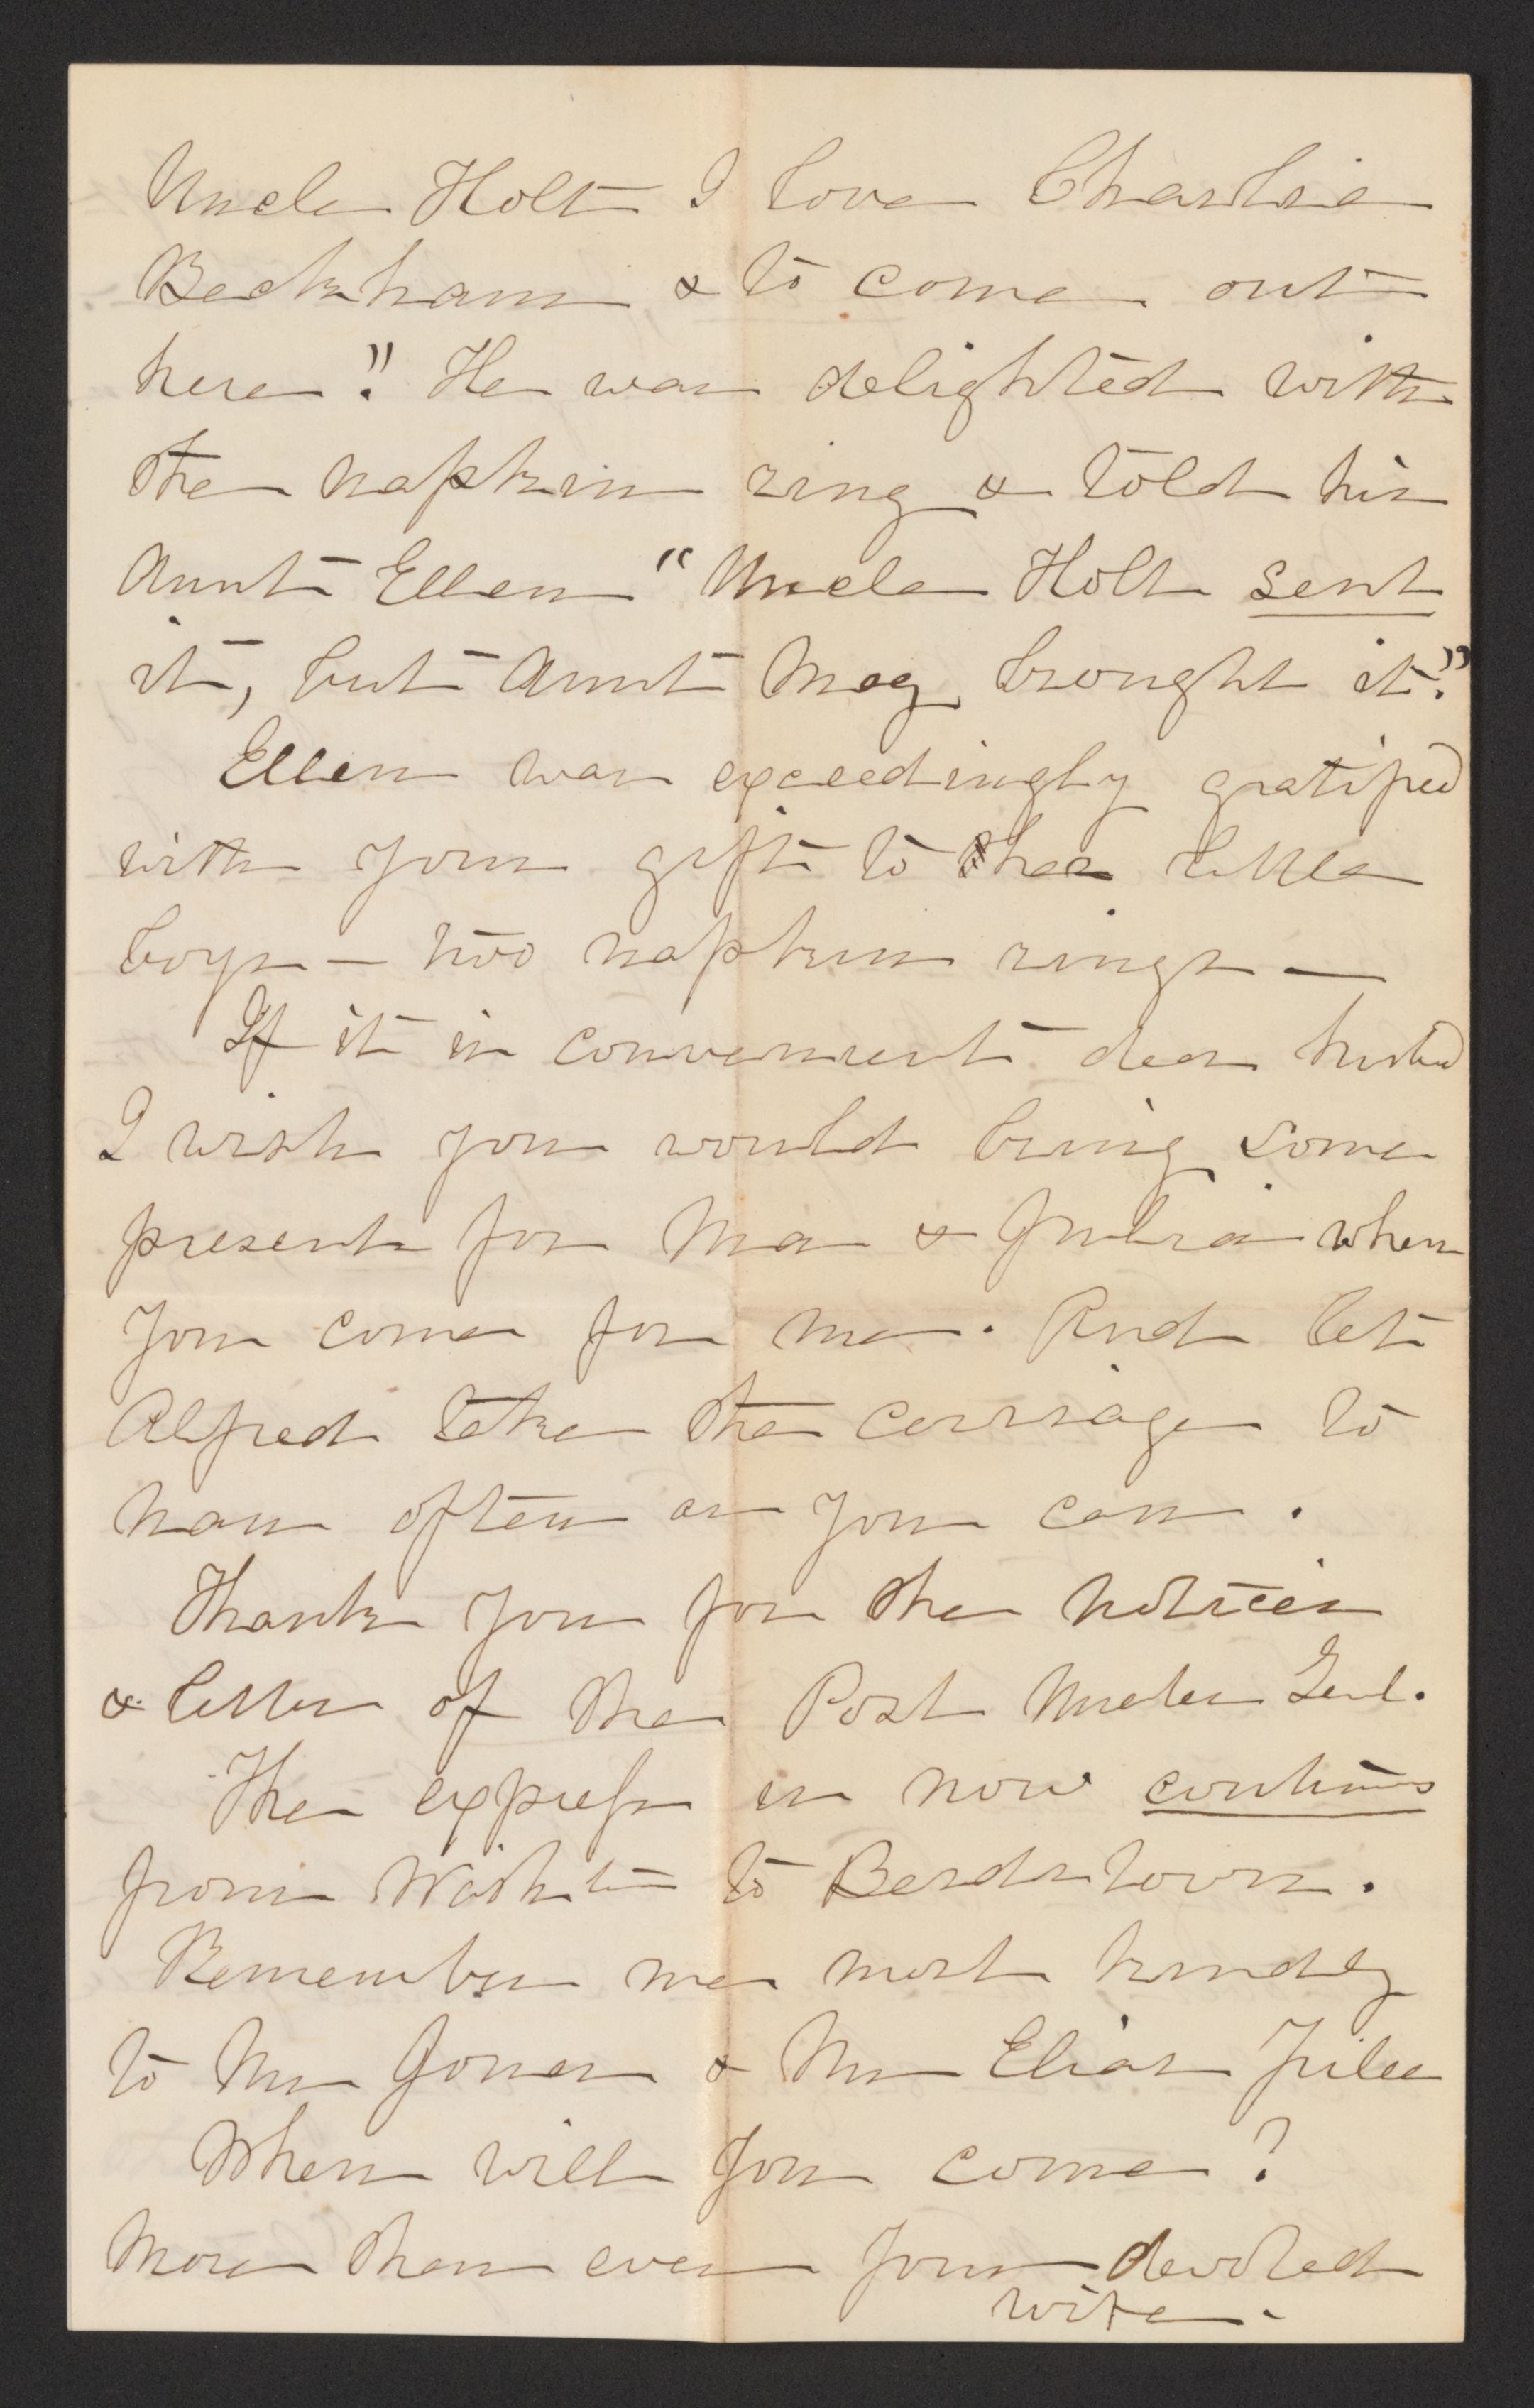 Uncle Holt I love Charlie
Beckham & to come out
here." He was delighted with
the napkin ring & told his
Aunt Ellen "Uncle Holt sent
it, but Aunt Mag brought it."
Ellen was exceedingly gratified
with your gift to her little
boys — two napkin rings —
If it is convenient dear husbd
I wish you would bring some
presents for Ma & Julia when
you come for me. And let
Alfred take the carriage to
Nan often as you can.
Thank you for the notices
& letter of the Post Genl.
The express is now continus
from Washtn to Bardstown.
Remember me most kindly
to Mr Jones & Mr Elias
When will you come?
More than ever your devoted
wife.